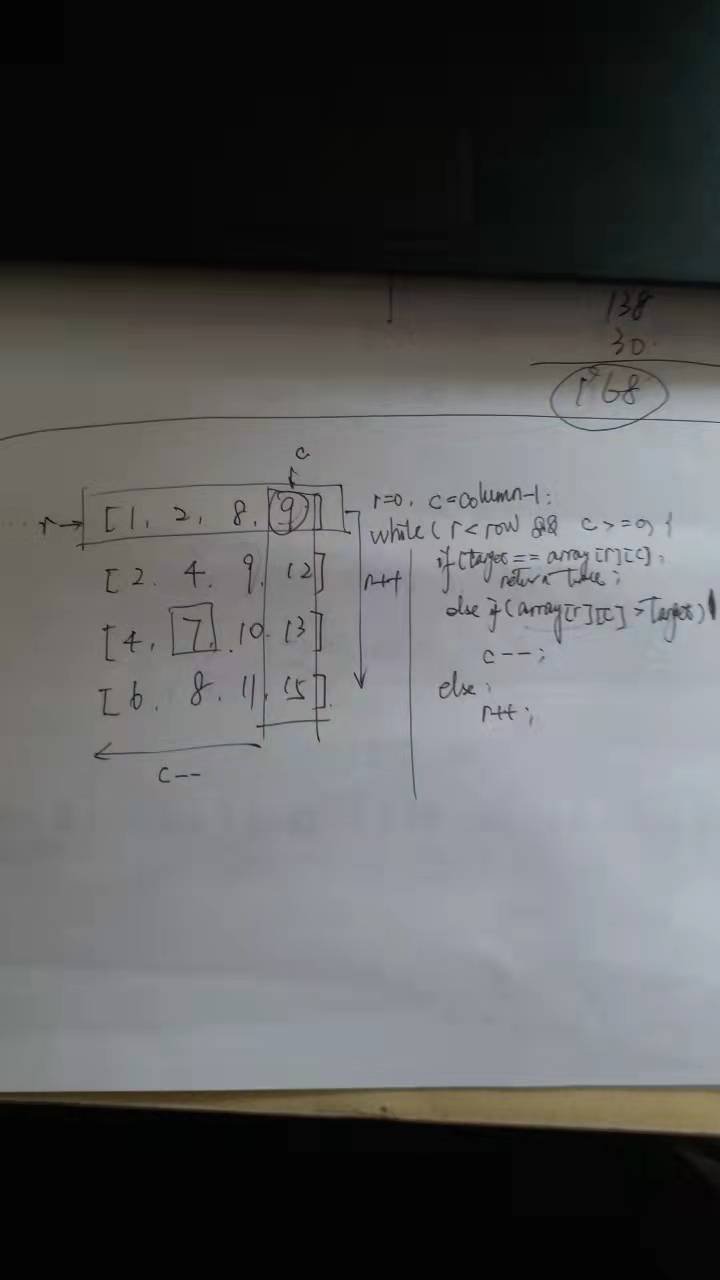 138
30
168
c
r→ [1, 2, 8, 9]
[2. 4. 9. 12]
[4, 7, 10. 13]
[6. 8. 11. 15].
r++
c--
r=0, c=column-1;
while( r < row && c >= 0) {
if(target == array[r][c].
return true;
else if(array[r][c] > Target)
c--;
else;
r++;